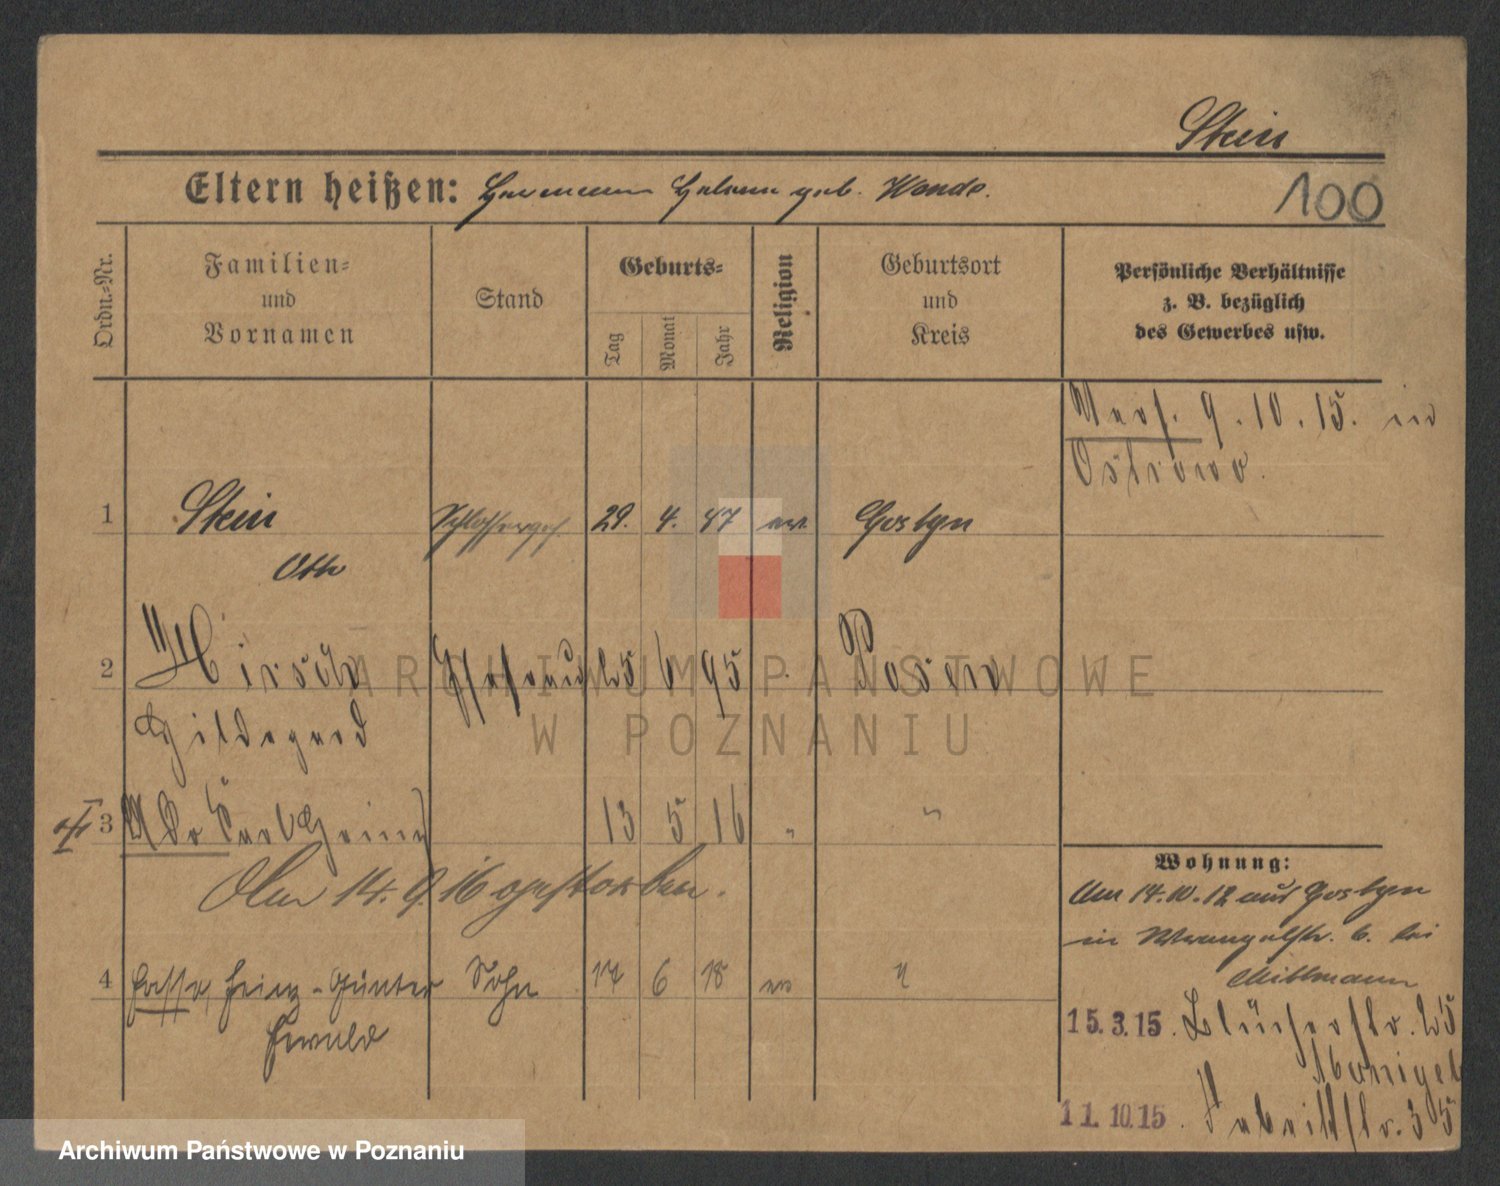 Stein
Eltern heißen: Hermann Helene geb. Wende.
100
Ordn.=Nr.
Familien=
und
Vornamen
Stand
Geburts=
Tag
Monat
Jahr
Religion
Geburtsort
und
Kreis
Persönliche Verhältnisse
z. B. bezüglich
des Gewerbes usw.
9.10.15. in
Ostrowo.
1 Stein Schlosserges. 29. 4. 87 ev. Gostyn
Otto
2 Hirsch Ehefrau 25 6 95 Posen
Hildegard
3 Heinz 13 5 16 "
Am 14.9.16 gestorben.
4 Heinz-Günter Sohn 17 6 18 ev "
Ewald
Wohnung:
Am 14.10.12 aus Gostyn
in Wrangelstr. 6. bei
Mittmann
15.3.15. Blücherstr. 25
11.10.15. 35
ARCHIWUM PAŃSTWOWE
W POZNANIU
Archiwum Państwowe w Poznaniu